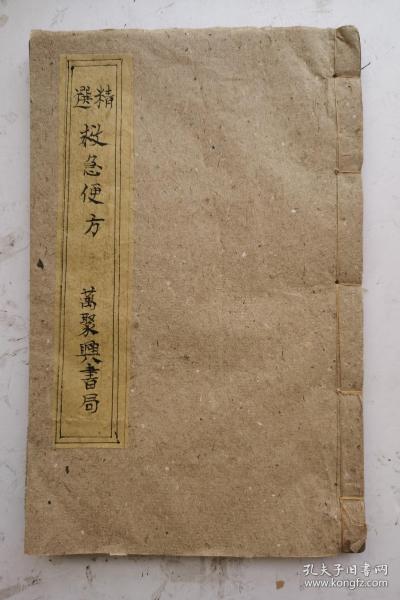 精選
救急便方
萬聚興書局
孔夫子旧书网
www.kongfz.com